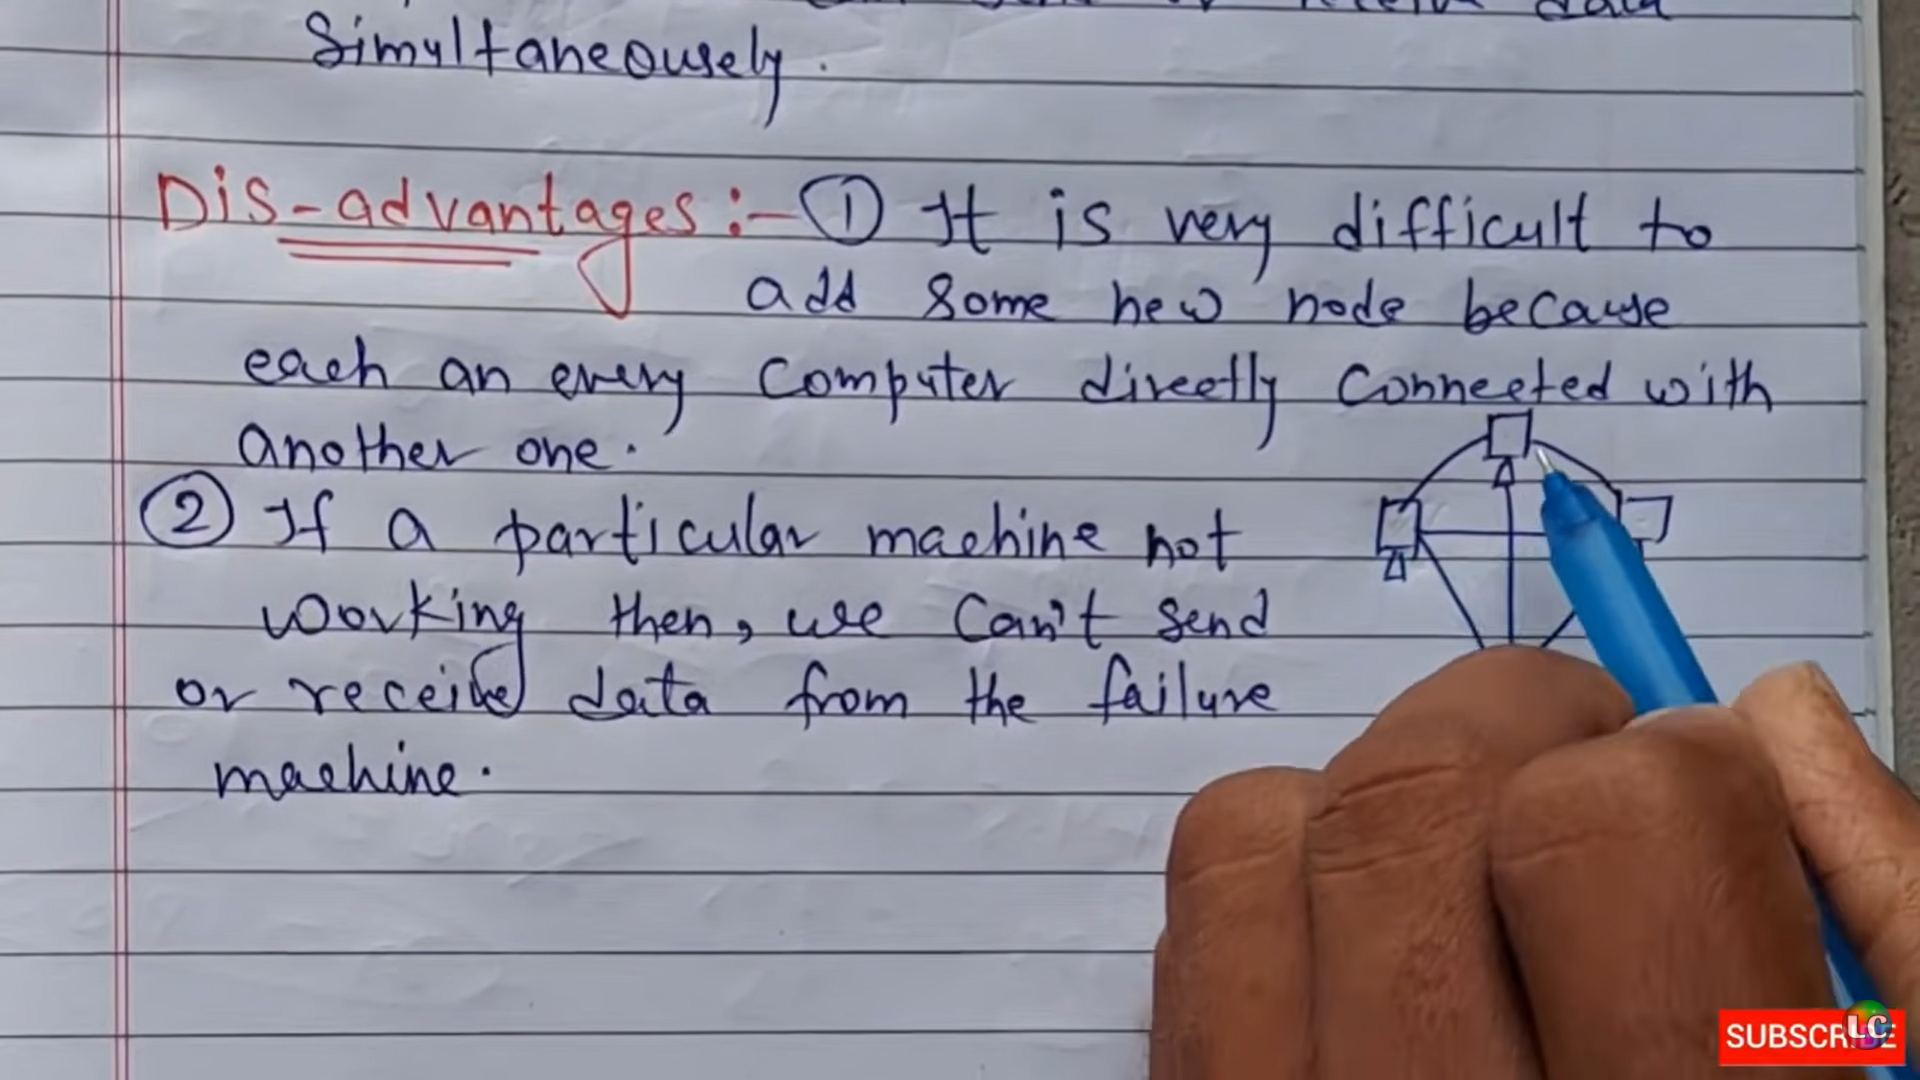 or receive data
Simultaneousely.
Dis-advantages :- ① It is very difficult to
add some new node because
each an every computer directly connected with
another one.
② If a particular machine not
working then, we can't send
or receive data from the failure
machine.
SUBSCRIBE
LC